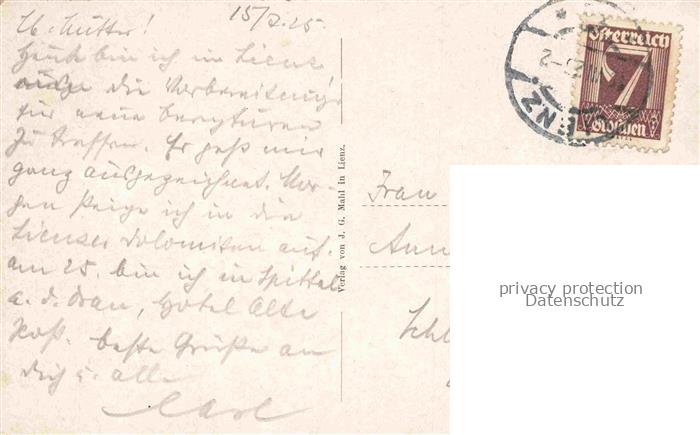 15/7.25
Lb. Mutter!
Heute bin ich in Lienz
um die Vorbereitung
für neue Bergturen
zu treffen. Es geht mir
ganz ausgezeichnet. Mor-
gen steige ich in die
Lienzer Dolomiten auf.
am 25. bin ich in Spittal
a. d. Drau, Hotel Alte
Post. beste Grüße an
dich u. alle
Carl
Verlag von J. G. Mahl in Lienz.
Österreich
7
Groschen
Frau
privacy protection
Datenschutz